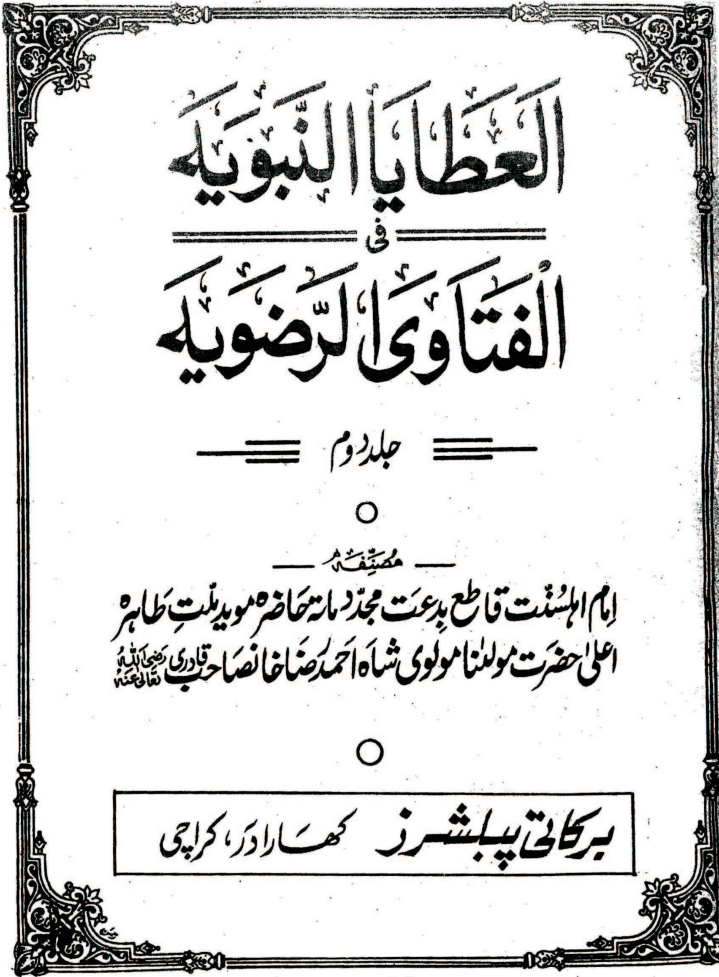 اَلعَطَايَا النَّبَوِيَه
فی
الْفَتَاوَی الرَّضَوِیَه
جلد دوم
مُصَنِّفَہ
اِمَامِ اہلسُنّت قاطعِ بِدعَت مجدّد مائۃ حَاضرہ مویدِ ملّتِ طَاہرہ
اعلیٰحضرَت مولٰنا مولوی شاہ احمد رَضَا خانصَاحب قادری رضی اللہ تعالیٰ عنہ
برکاتی پبلشرز کھارادَر، کراچی